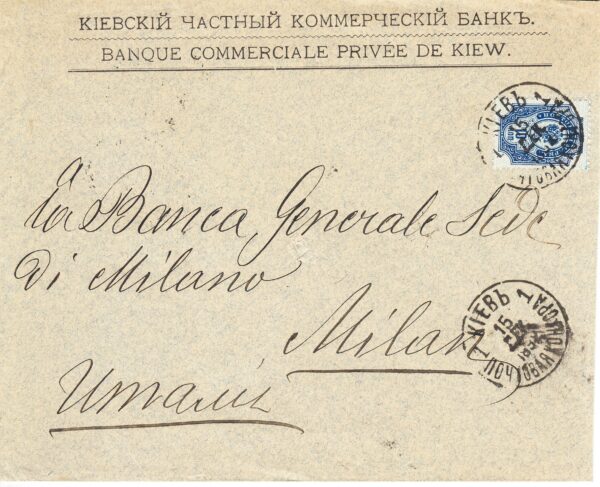 КІЕВСКІЙ ЧАСТНЫЙ КОММЕРЧЕСКІЙ БАНКЪ.
BANQUE COMMERCIALE PRIVÉE DE KIEW.
КІЕВЪ 1
15
a
la Banca Generale Sede
di Milano
Milan
КІЕВЪ 1
15
ПОЧТОВАЯ КОНТОРА
Италія